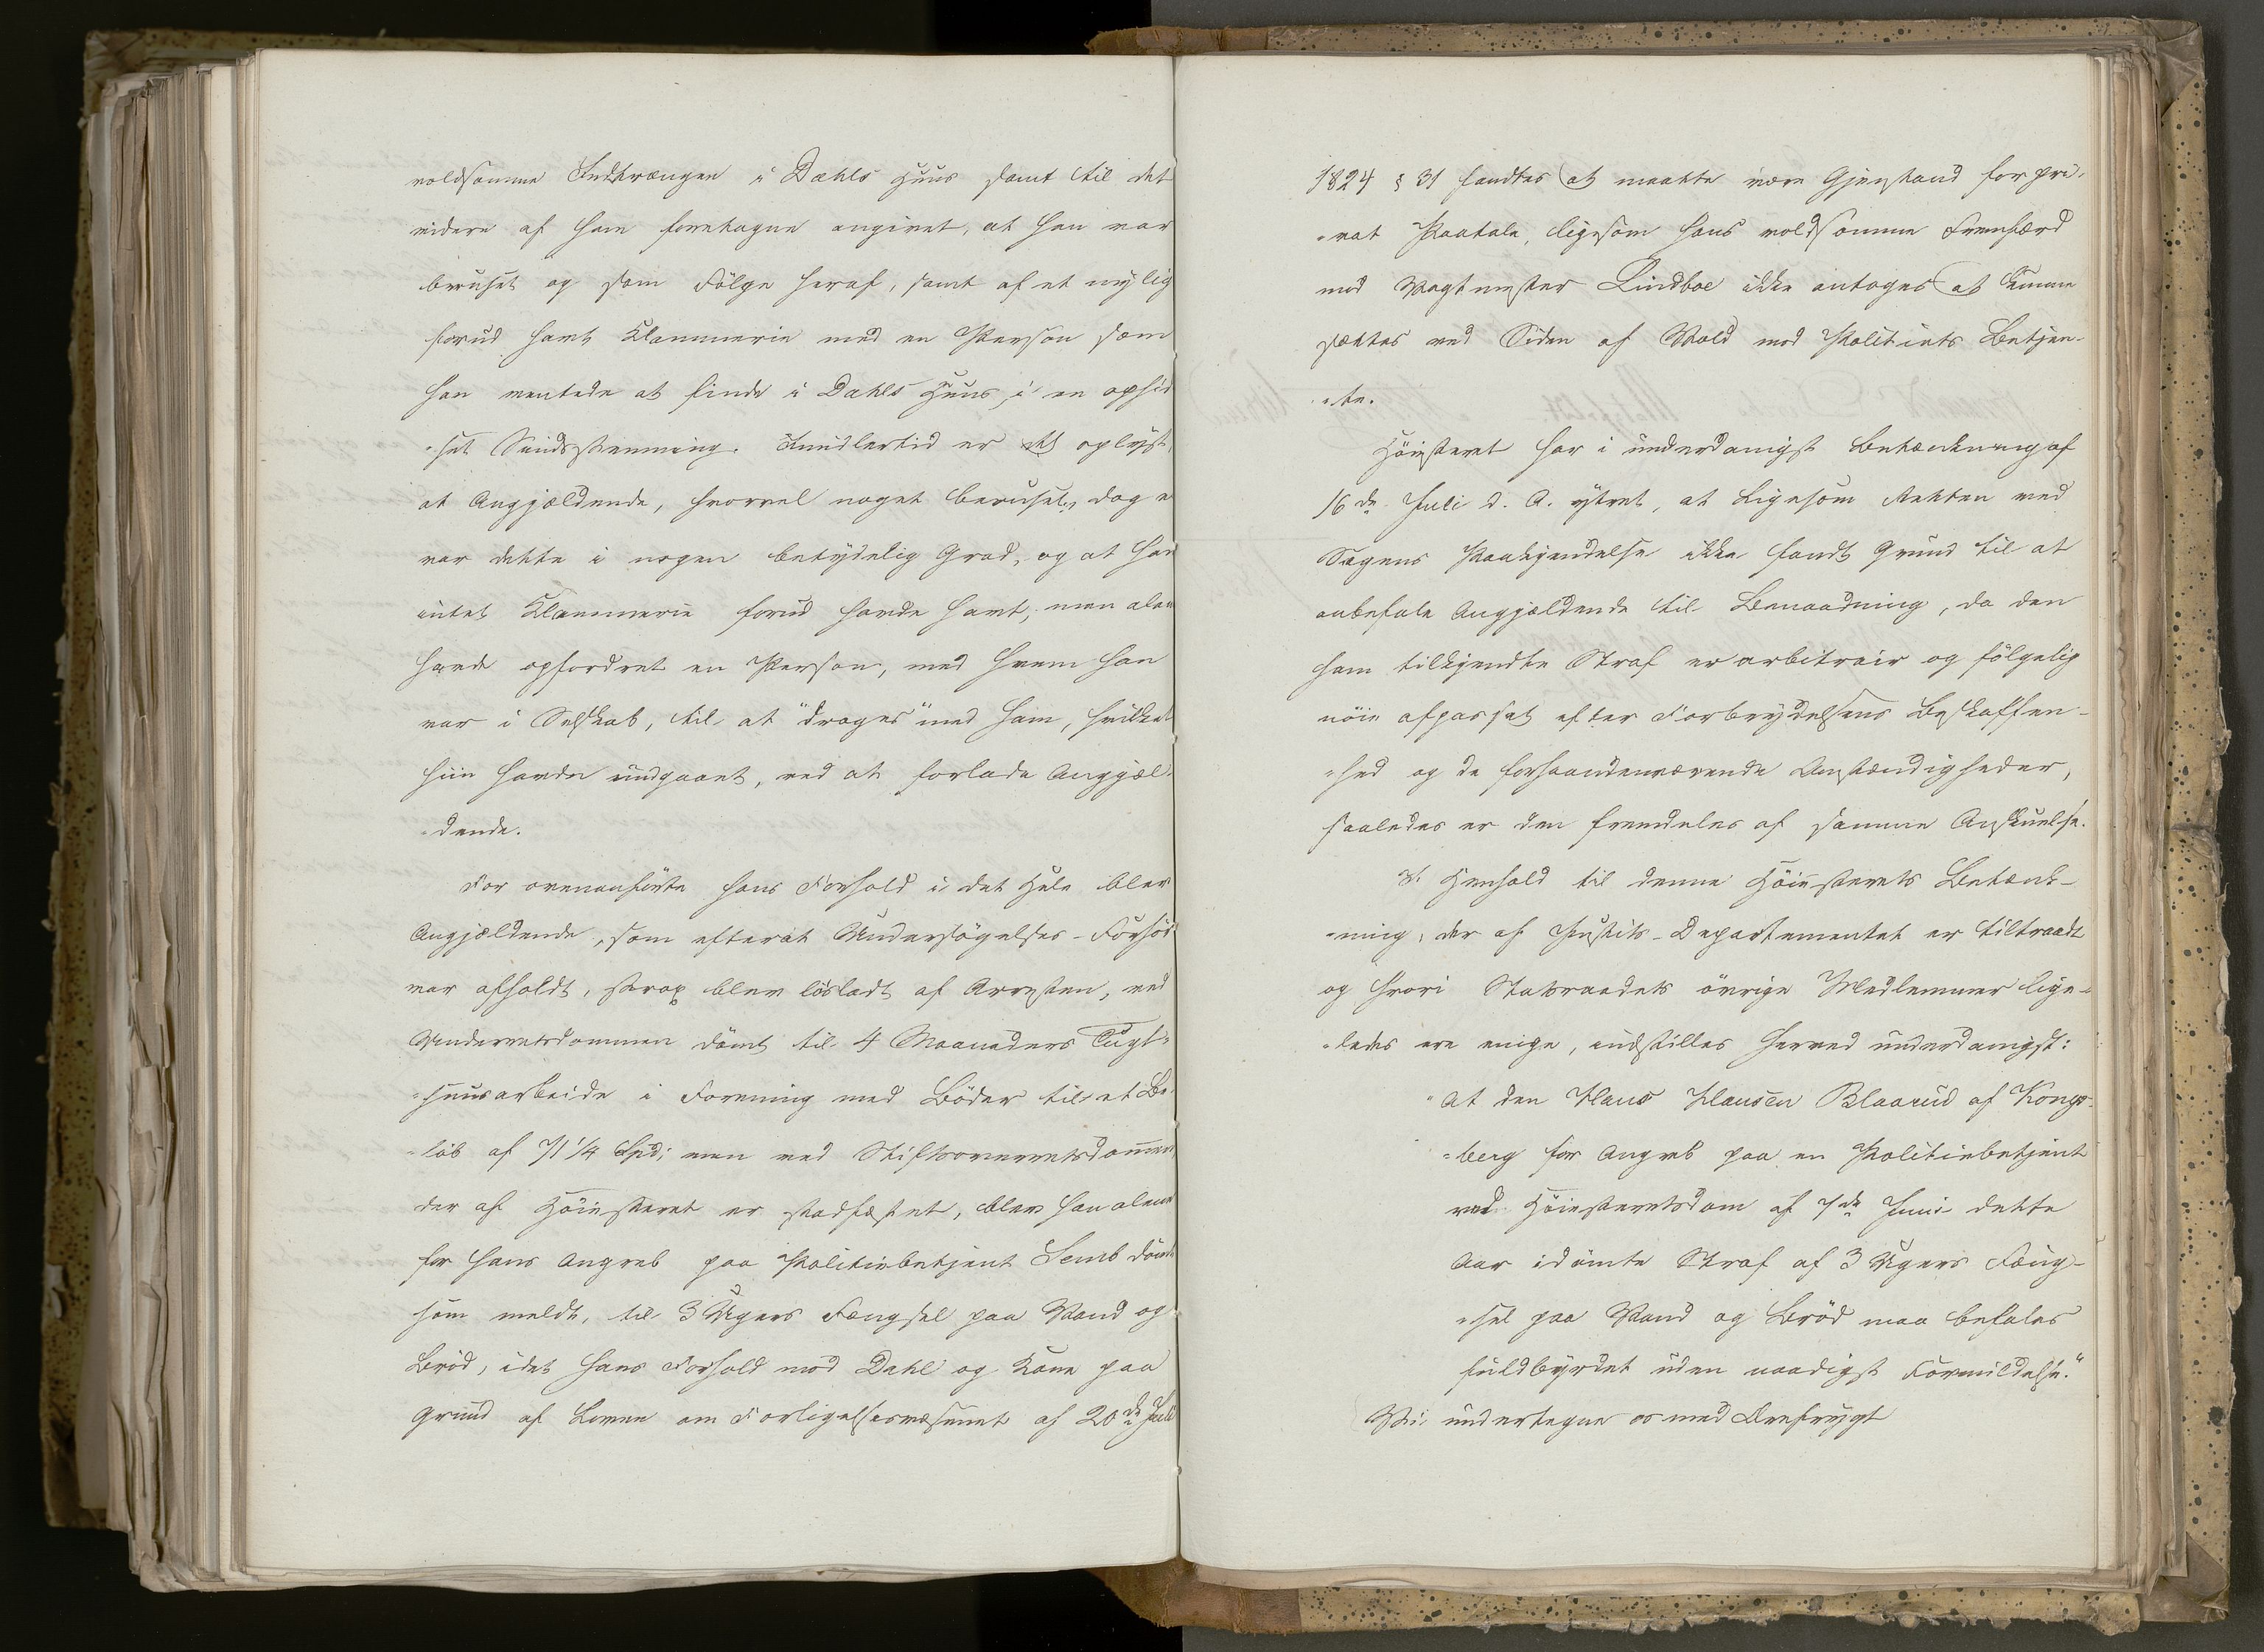 voldsomme Indtrængen i Dahls Huus samt til det
videre af ham foretagne angivet, at han var
beruset og som Følge heraf, samt af et nylig
forud havt Klammerie med en Person som
han ventede at finde i Dahls Huus, i en ophid
"set Sindsstemning. Imidlertid er det oplyst,
at Angjældende, hvorvel noget beruset, dog ei
var dette i nogen betydelig Grad, og at han
intet Klammerie forud havde havt, men alene
havde opfordret en Person, med hvem han
var i Selskab, til at "drages" med ham, hvilket
hiin havde undgaaet, ved at forlade Angjæl-
"dende.
For ovenanførte hans Forhold i det Hele blev
Angjældende, som efterat Undersøgelses-Forhør
var afholdt, strax blev løsladt af Arresten, ved
Underretsdommen dømt til 4 Maaneders Tugt-
"huusarbeide i Forening med Bøder til et Be-
"løb af 71 1/4 Spd; men ved Stiftsoverretsdommen,
der af Høiesteret er stadfæstet, blev han alene
for hans Angreb paa Politiebetjent Semb dømt
som meldt, til 3 Ugers Fængsel paa Vand og
Brød, idet hans Forhold mod Dahl og Kone paa
Grund af Loven om Forligelsesvæsenet af 20de Juli
1824 § 31 fandtes at maatte være Gjenstand for pri-
"vat Paatale, ligesom hans voldsomme Fremfærd
mod Vagtmester Lindboe ikke antoges at kunne
sættes ved Siden af Vold mod Politiets Betjen-
"te.
Høiesteret har i underdanigst Betænkning af
16de Juli d. A. ytret, at ligesom Retten ved
Sagens Paakjendelse ikke fandt Grund til at
anbefale Angjældende til Benaadning, da den
ham tilkjendte Straf er arbitrair og følgelig
nøie afpasset efter Forbrydelsens Beskaffen-
"hed og de forhaandenværende Omstændigheder,
saaledes er den fremdeles af samme Anskuelse.
I Henhold til denne Høiesterets Betænk-
"ning, der af Justits-Departementet er tiltraadt
og hvori Statsraadets øvrige Medlemmer lige-
"ledes ere enige, indstilles herved underdanigst:
"At den Hans Hansen Blaarud af Kongs-
"berg for Angreb paa en Politiebetjent
ved Høiesteretsdom af 7de Juni dette
Aar idømte Straf af 3 Ugers Fæng-
"sel paa Vand og Brød maa befales
fuldbyrdet uden naadigst Formildelse."
Vi undertegne os med Ærefrygt